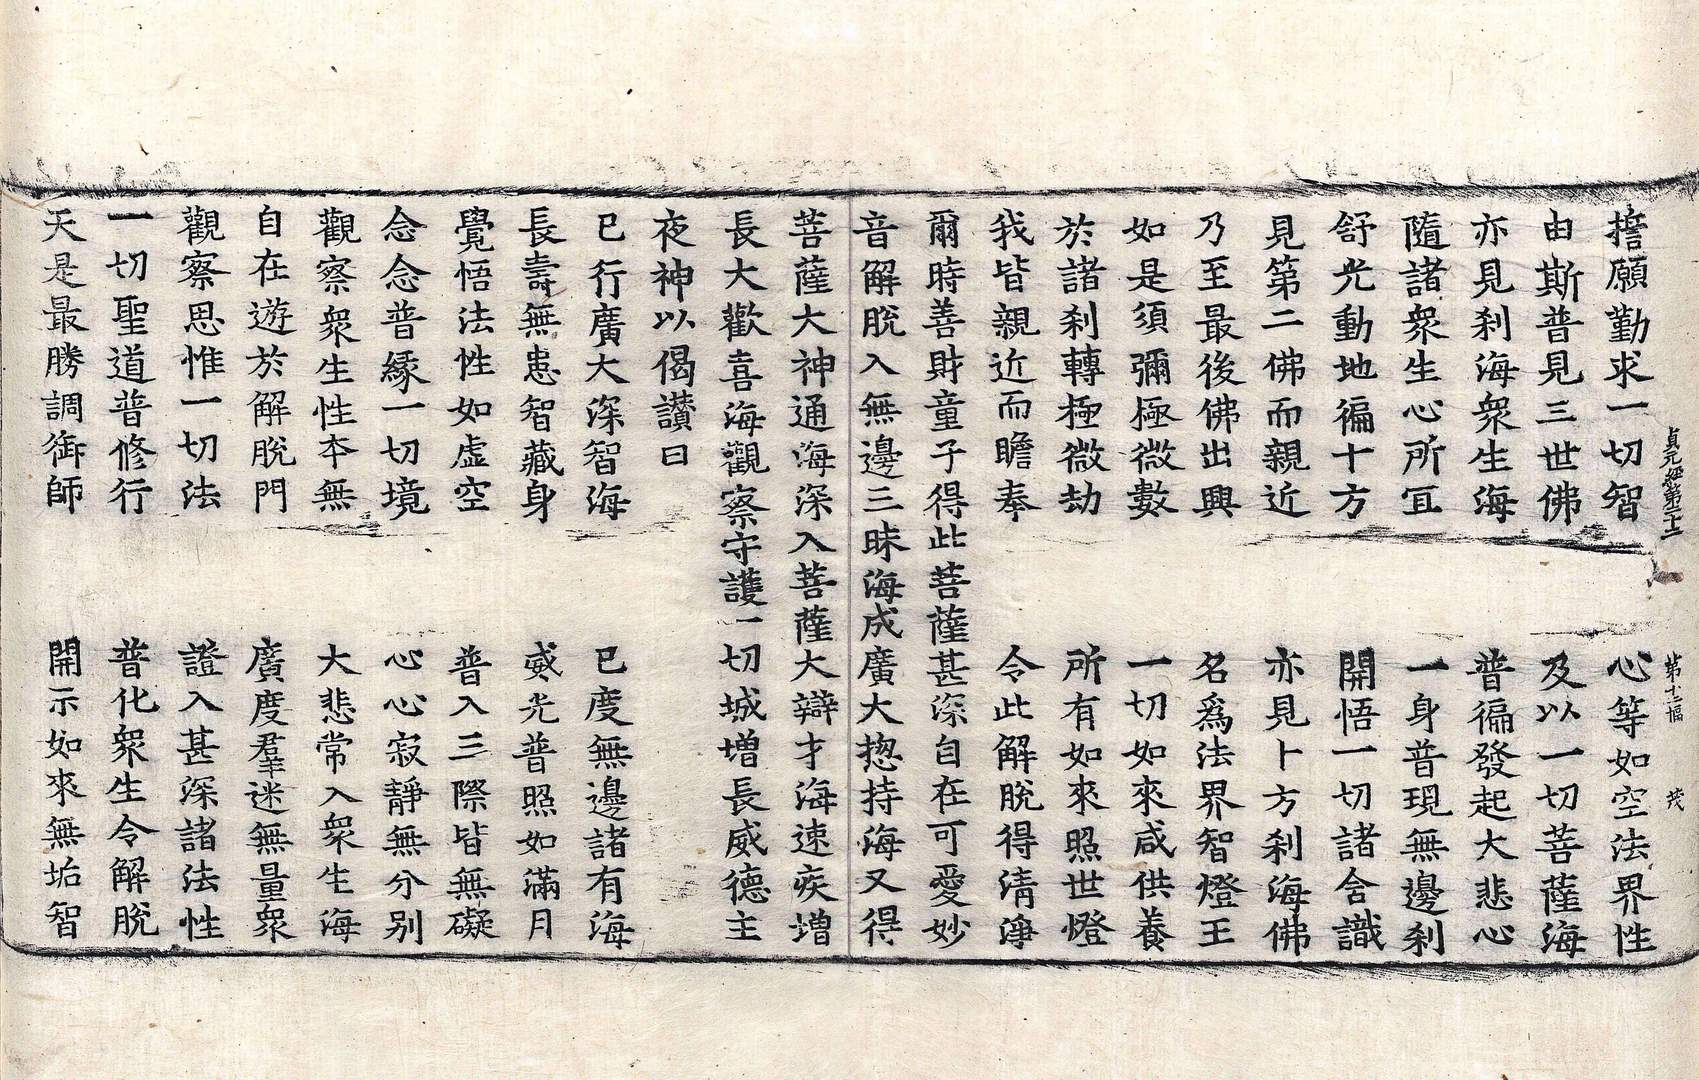 貞元經第二十二　第十二幅　茂
擔願勤求一切智　心等如空法界性
由斯普見三世佛　及以一切菩薩海
亦見刹海衆生海　普徧發起大悲心
隨諸衆生心所冝　一身普現無邊刹
舒光動地徧十方　開悟一切諸含識
見第二佛而親近　亦見十方刹海佛
乃至最後佛出興　名爲法界智燈王
如是須彌極微數　一切如來咸供養
於諸刹轉極微劫　所有如來照世燈
我皆親近而瞻奉　令此解脫得清淨
爾時善財童子得此菩薩甚深自在可愛妙
音解脫入無邊三昧海成廣大揔持海又得
菩薩大神通海深入菩薩大辯才海速疾增
長大歡喜海觀察守護一切城增長威德主
夜神以偈讃曰
已行廣大深智海　已度無邊諸有海
長壽無患智藏身　威光普照如滿月
覺悟法性如虛空　普入三際皆無礙
念念普緣一切境　心心寂靜無分别
觀察衆生性本無　大悲常入衆生海
自在遊於解脫門　廣度羣迷無量衆
觀察思惟一切法　證入甚深諸法性
一切聖道普修行　普化衆生令解脫
天是最勝調御師　開示如來無垢智